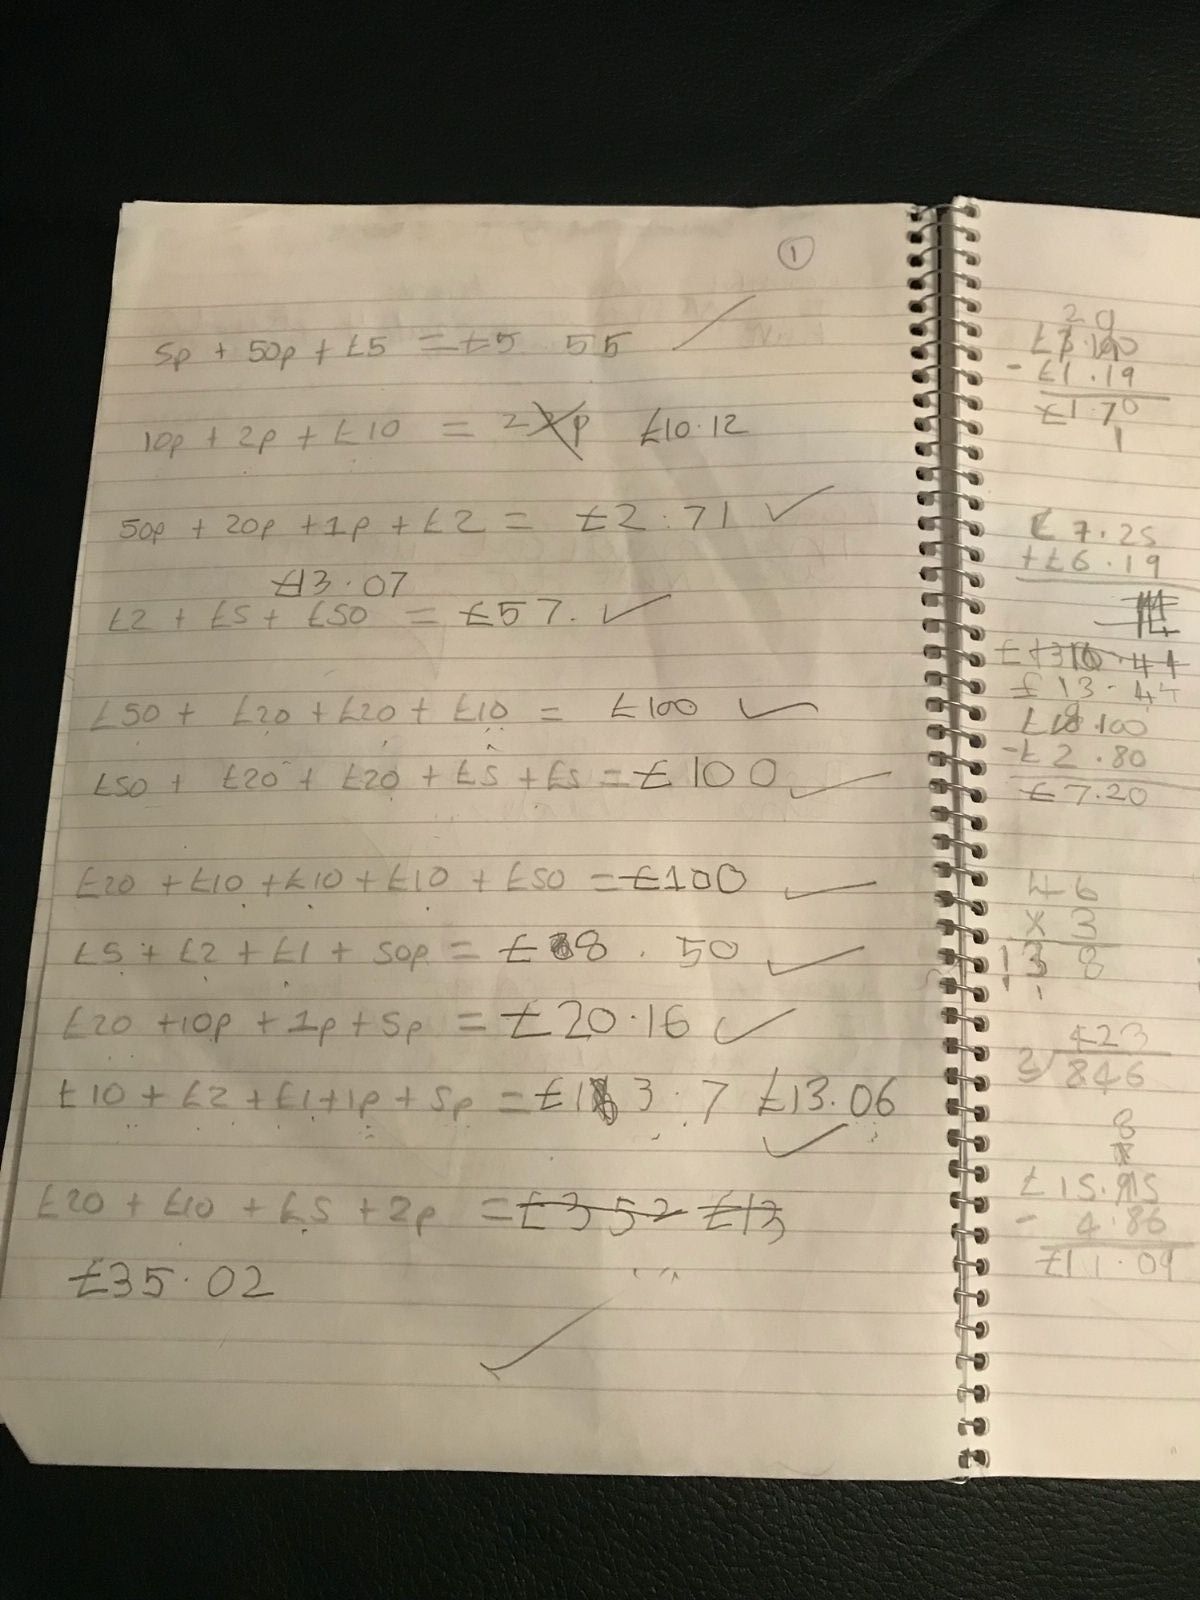 1
5p + 50p + £5 = £5 55
10p + 2p + £10 = £10.12
50p + 20p + 1p + £2 = £2.71
£13.07
£2 + £5 + £50 = £57.
£50 + £20 + £20 + £10 = £100
£50 + £20 + £20 + £5 + £5 = £100
£20 + £10 + £10 + £10 + £50 = £100
£5 + £2 + £1 + 50p = £8.50
£20 + 10p + 1p + 5p = £20.16
£10 + £2 + £1 + 1p + 5p = £13.7 £13.06
£20 + £10 + £5 + 2p = £352 £13
£35.02
- £1.19
£7.25
+ £6.19
£13.44
- £2.80
£7.20
46
x 3
138
423
2 846
- 4.86
£11.09